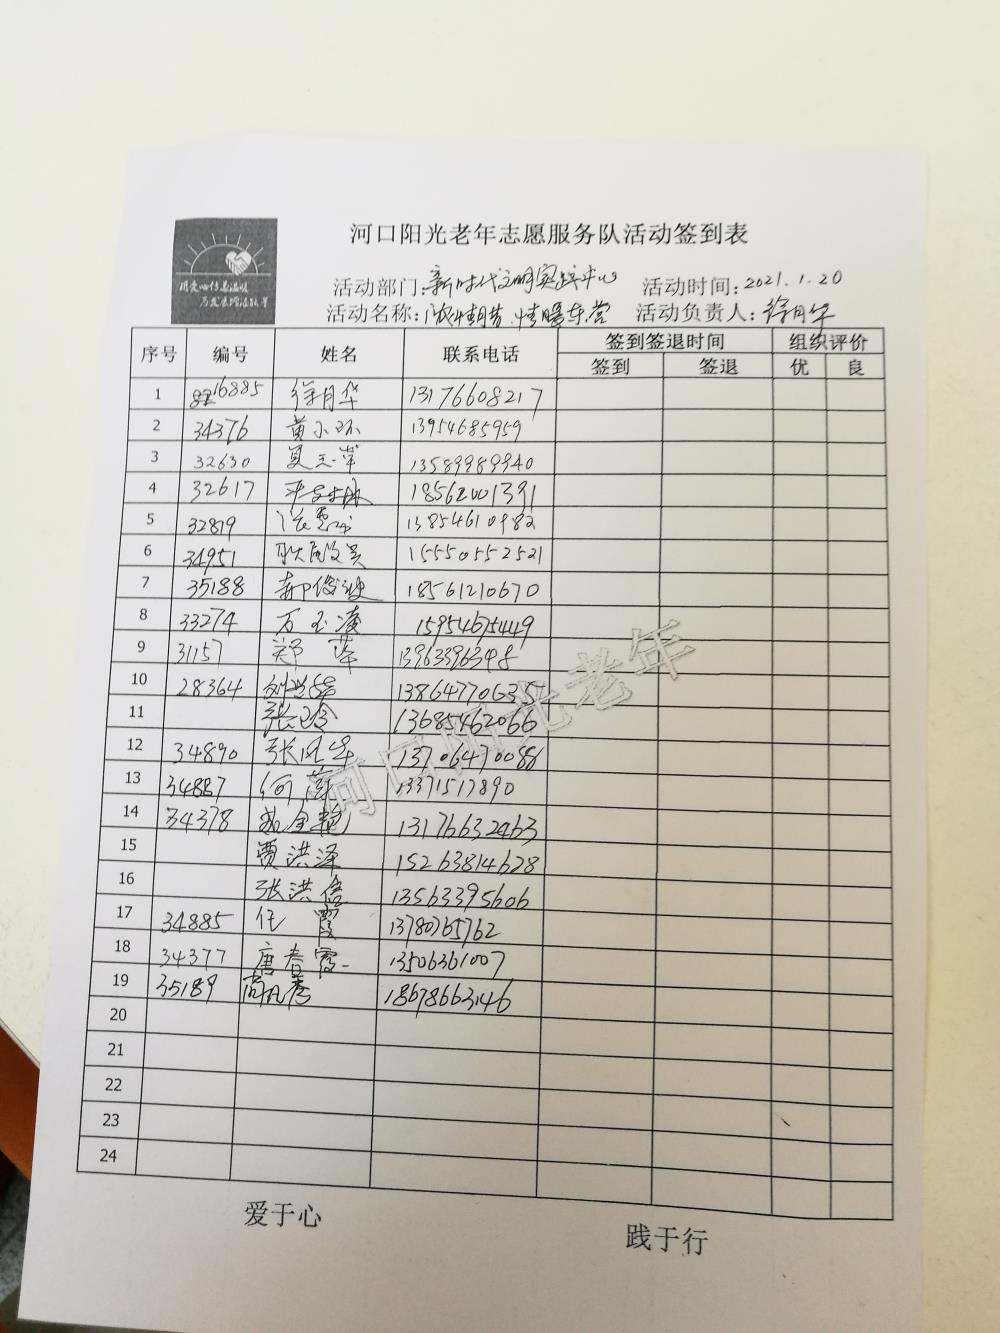 河口阳光老年志愿服务队活动签到表
活动部门:新时代文明实践中心 活动时间:2021.1.20
活动名称: 情暖东营 活动负责人:徐月华
序号 编号 姓名 联系电话 签到签退时间 组织评价
签到 签退 优 良
1 16885 徐月华 13176608217
2 34376 黄小环 13954685959
3 32630 夏玉萍 13589989940
4 32617 18562001391
5 32819 13854610982
6 34951 15550552521
7 35188 郝俊 18561210670
8 33274 万玉凌 15954675449
9 31157 郑萍 13963396348
10 28364 刘 
11 张玲 13685462066
12 34890 张凤华 13706470088
13 34887 何萍 13371517890
14 34378 13176632463
15 贾洪泽 15263814628
16 张洪信 13563395606
17 34885 任霞 13780765762
18 34377 唐春霞 13506361007
19 35189 尚凡秀 18678663146
20
21
22
23
24
爱于心 践于行
河口阳光老年